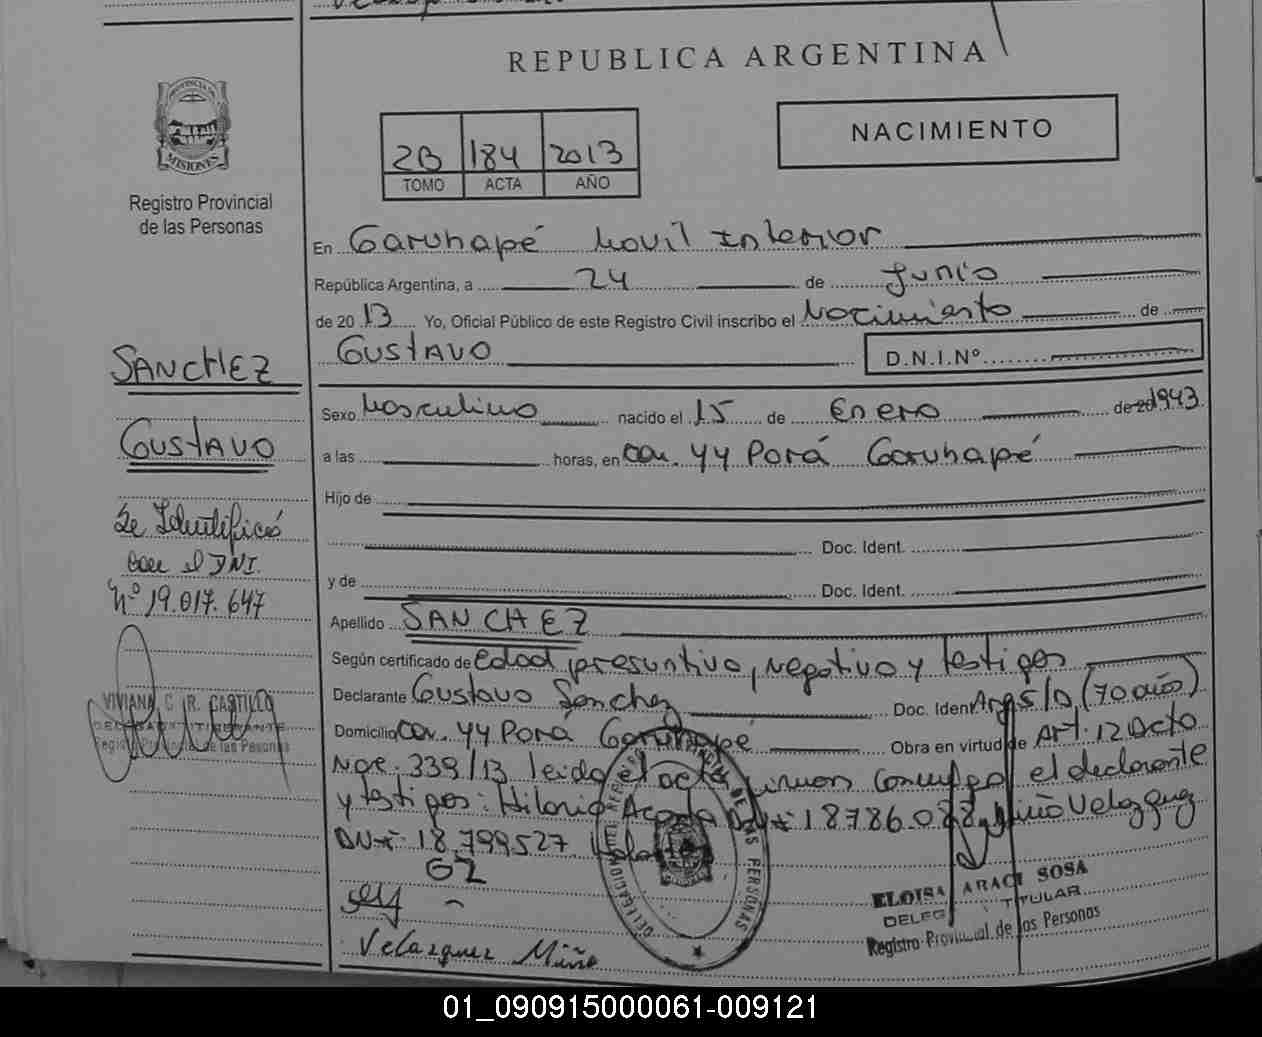 REPUBLICA ARGENTINA
PROVINCIA DE
MISIONES
Registro Provincial
de las Personas
2B 184 2013
TOMO ACTA AÑO
NACIMIENTO
En Garuhapé Movil Interior
República Argentina, a 24 de Junio
de 2013 Yo, Oficial Público de este Registro Civil inscribo el Nacimiento de
GUSTAVO D.N.I.Nº
SANCHEZ
GUSTAVO
Se Identificó
con el DNI.
Nº 19.017.647
VIVIANA C. R. CASTILLO
Registro Provincial de las Personas
Sexo Masculino nacido el 15 de Enero de 20 1943
a las horas, en Col. YY Porá Garuhapé
Hijo de
Doc. Ident.
y de Doc. Ident.
Apellido SANCHEZ
Según certificado de edad presuntiva, negativo y testigos
Declarante Gustavo Sanchez Doc. Ident Arg S/D (70 años)
Domicilio Col. YY Porá Garuhapé Obra en virtud de Art. 12 Dcto
Nº 339/13 leida el acta firman conmigo el declarante
y testigos: Hilario Acosta DNI: 18786.088 y Miño Velazquez
DNI: 18.799527
GZ
Velazquez Miño
REGISTRO PROVINCIAL DE LAS PERSONAS
ELOISA ARACI SOSA
DELEG TITULAR
Registro Provincial de las Personas
01_090915000061-009121